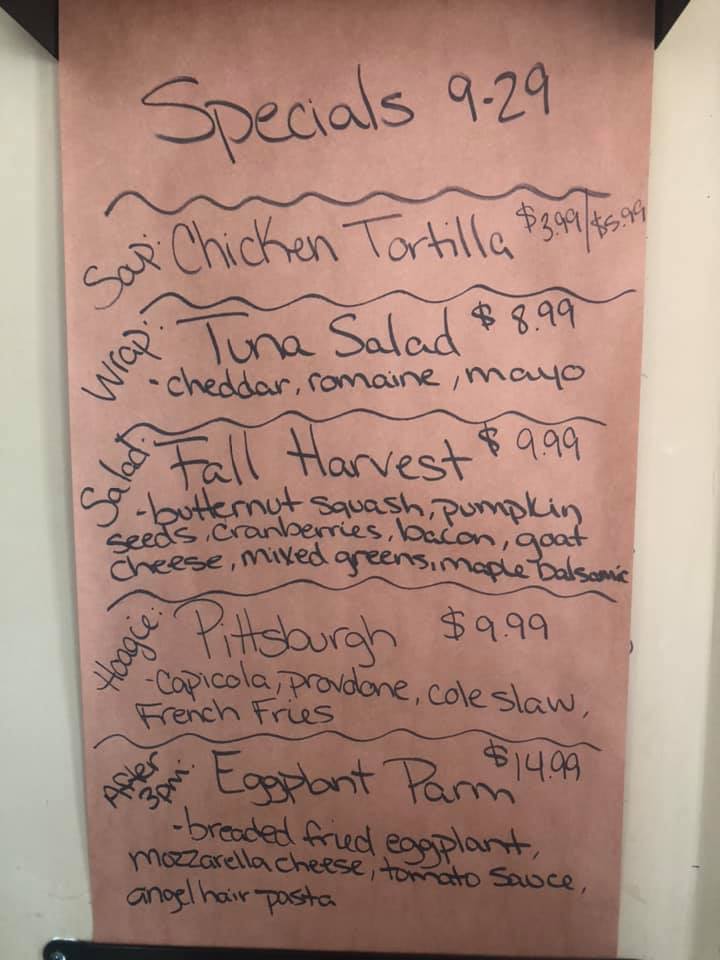 Specials 9-29
Soup: Chicken Tortilla $3.99/$5.99
Wrap: Tuna Salad $8.99
-cheddar, romaine, mayo
Salad: Fall Harvest $9.99
-butternut squash, pumpkin
seeds, cranberries, bacon, goat
cheese, mixed greens, maple balsamic
Hoagie: Pittsburgh $9.99
-capicola, provolone, cole slaw,
French Fries
After 3pm: Eggplant Parm $14.99
-breaded fried eggplant,
mozzarella cheese, tomato sauce,
angel hair pasta